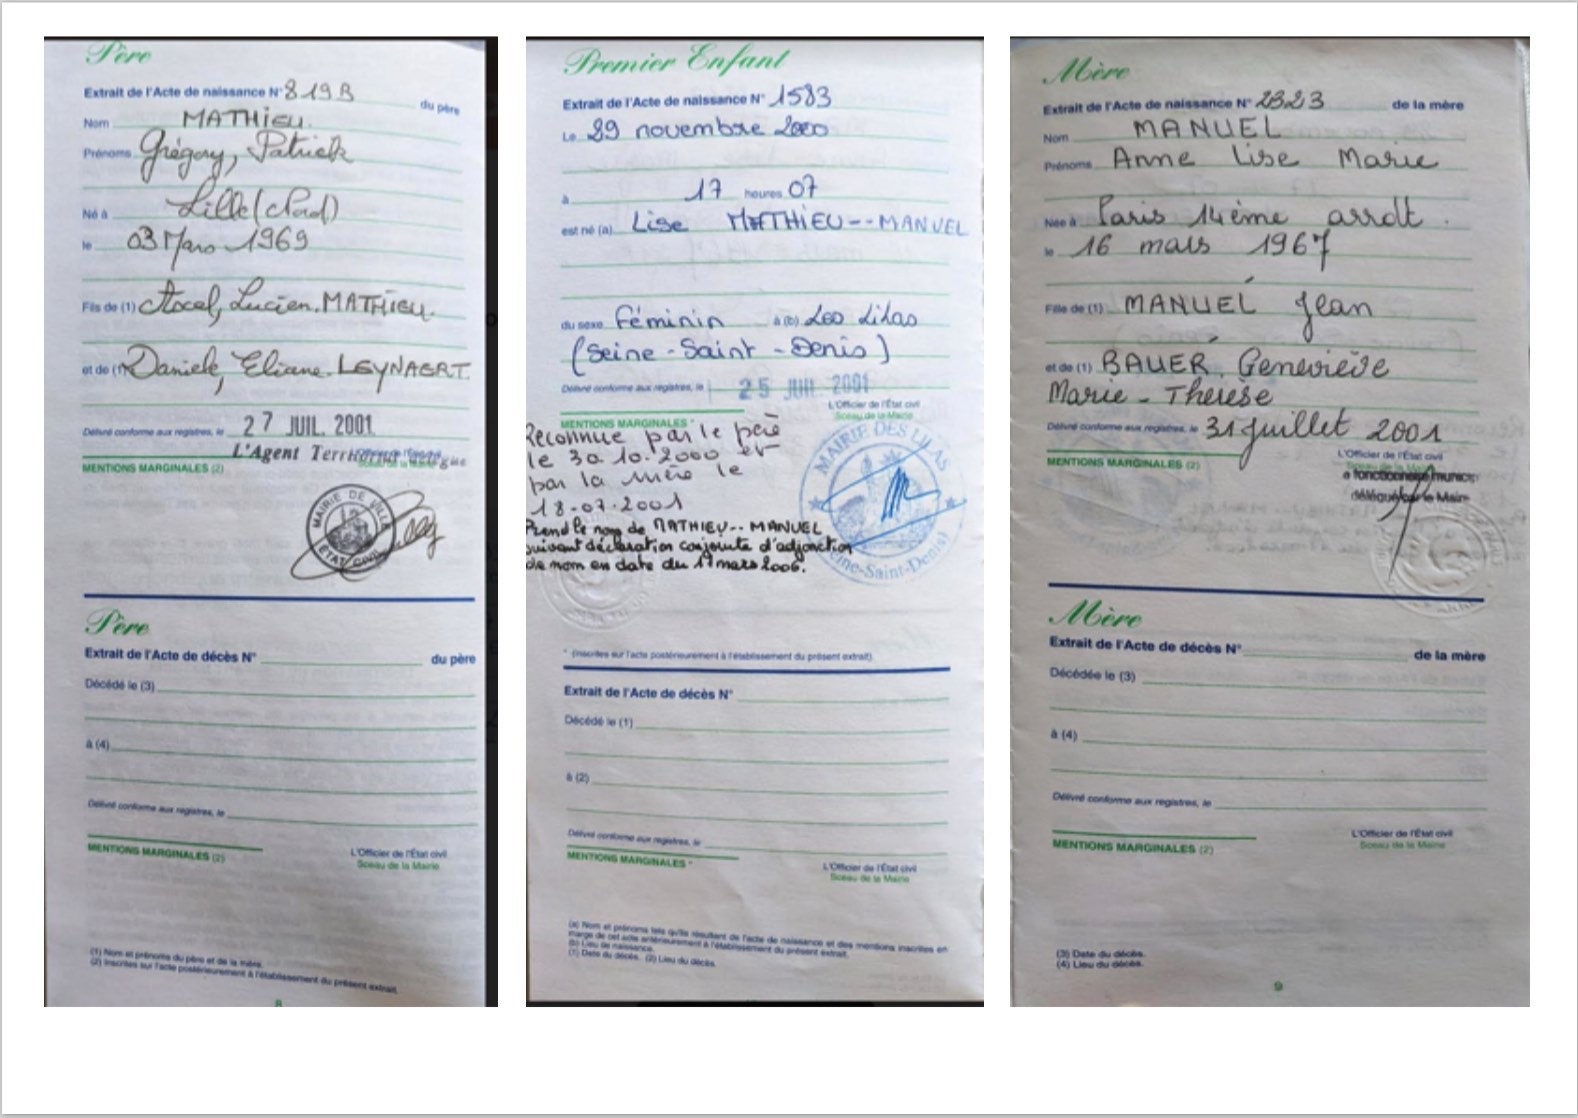 Père
Extrait de l'Acte de naissance N° 819B du père
Nom MATHIEU.
Prénoms Grégory, Patrick
Né à Lille (Nord)
le 03 Mars 1969
Fils de (1) Lucien. MATHIEU.
et de (1) Daniele, Eliane. LEYNAERT.
Délivré conforme aux registres, le 27 JUIL. 2001
L'Agent Territorial
MENTIONS MARGINALES (2)
MAIRIE DE
ÉTAT CIVIL
Père
Extrait de l'Acte de décès N° du père
Décédé le (3)
à (4)
Délivré conforme aux registres, le
MENTIONS MARGINALES (2)
L'Officier de l'État civil
Sceau de la Mairie
(1) Nom et prénoms du père et de la mère.
(2) Inscrites sur l'acte postérieurement à l'établissement du présent extrait.
8
Premier Enfant
Extrait de l'Acte de naissance N° 1583
Le 29 novembre 2000
à 17 heures 07
est né (a) Lise MATHIEU--MANUEL
du sexe Féminin à (b) Les Lilas
(Seine-Saint-Denis)
Délivré conforme aux registres, le 25 JUIL 2001
L'Officier de l'État civil
Sceau de la Mairie
MENTIONS MARGINALES *
Reconnue par le père
le 30.10.2000 et
par la mère le
18-07-2001
Prend le nom de MATHIEU--MANUEL
suivant déclaration conjointe d'adjonction
de nom en date du 17 mars 2006.
MAIRIE DES LILAS
Seine-Saint-Denis
* (Inscrites sur l'acte postérieurement à l'établissement du présent extrait).
Extrait de l'Acte de décès N°
Décédé le (1)
à (2)
Délivré conforme aux registres, le
MENTIONS MARGINALES *
L'Officier de l'État civil
Sceau de la Mairie
(a) Nom et prénoms tels qu'ils résultent de l'acte de naissance et des mentions inscrites en
marge de cet acte antérieurement à l'établissement du présent extrait.
(b) Lieu de naissance.
(1) Date du décès. (2) Lieu du décès.
Mère
Extrait de l'Acte de naissance N° 2323 de la mère
Nom MANUEL
Prénoms Anne Lise Marie
Née à Paris 14ème arrdt.
le 16 mars 1967
Fille de (1) MANUEL Jean
et de (1) BAUER, Geneviève
Marie-Thérèse
Délivré conforme aux registres, le 31 juillet 2001
MENTIONS MARGINALES (2)
L'Officier de l'État civil
délégué par le Maire
Mère
Extrait de l'Acte de décès N° de la mère
Décédée le (3)
à (4)
Délivré conforme aux registres, le
MENTIONS MARGINALES (2)
L'Officier de l'État civil
Sceau de la Mairie
(3) Date du décès.
(4) Lieu du décès.
9